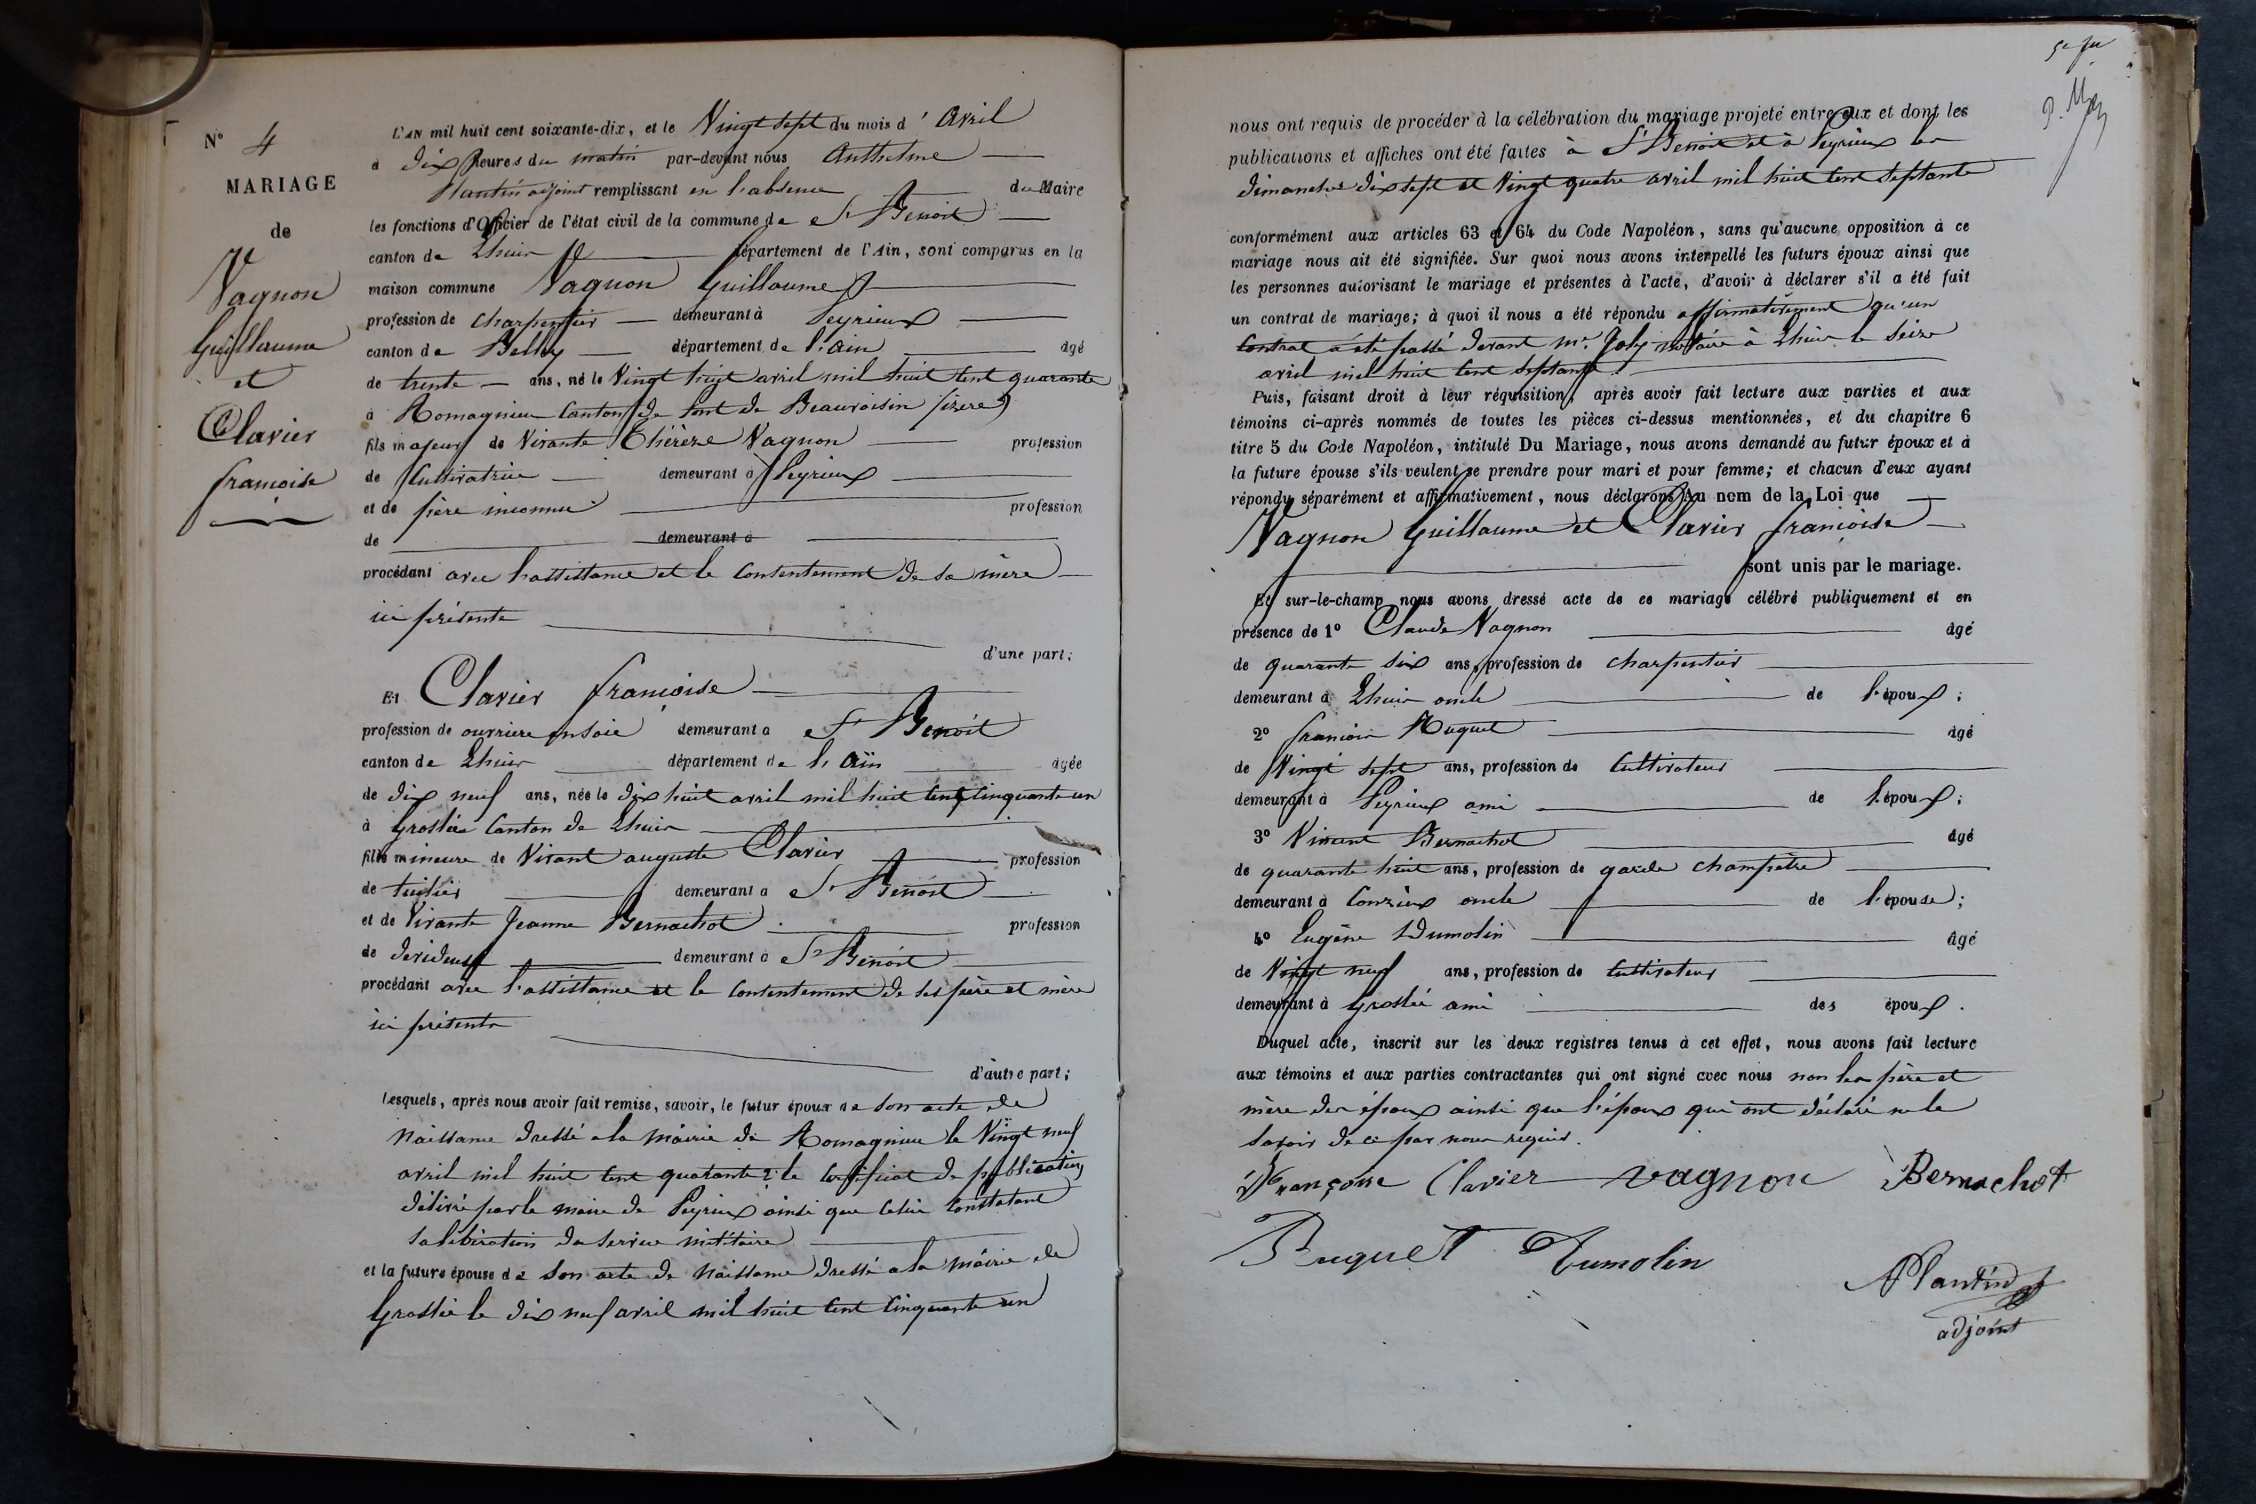 N° 4
MARIAGE
de
Vagnon
Guillaume
et
Clavier
françoise
L'AN mil huit cent soixante-dix, et le Vingt sept du mois d' Avril
à dix heures du matin par-devant nous Anthelme
Plantin adjoint remplissant en l'absence du Maire
les fonctions d'Officier de l'état civil de la commune de St Benoit
canton de Lhuis département de l'Ain, sont comparus en la
maison commune Vagnon Guillaume
profession de charpentier demeurant à Peyrieux
canton de Belley département de l'ain âgé
de trente ans, né le Vingt huit avril mil huit cent quarante
à Romagnieu Canton de Pont de Beauvoisin (isère)
fils majeur de Vivante Thérèze Vagnon profession
de Cultivatrice demeurant à Peyrieux
et de père inconnu profession
de demeurant à
procédant avec l'assistance et le consentement de sa mère
ici présente
d'une part;
Et Clavier françoise
profession de ouvrière en soie demeurant à St Benoit
canton de Lhuis département de l'Ain âgée
de dix neuf ans, née le dix huit avril mil huit cent cinquante un
à Groslée Canton de Lhuis
fille mineure de Vivant auguste Clavier profession
de tuilier demeurant à St Benoit
et de Vivante Jeanne Bernachot profession
de devideuse demeurant à St Benoit
procédant avec l'assistance et le consentement de ses père et mère
ici présents
d'autre part;
Lesquels, après nous avoir fait remise, savoir, le futur époux de son acte de
Naissance dressé a la Mairie de Romagnieu le Vingt neuf
avril mil huit cent quarante 2° le certificat de publication
délivré par le maire de Peyrieux ainsi que celui constatant
sa libération du service militaire
et la future épouse de son acte de Naissance dressé a la Mairie de
Groslée le dix neuf avril mil huit cent cinquante un
5e fu
nous ont requis de procéder à la célébration du mariage projeté entre eux et dont les
publications et affiches ont été faites à St Benoit et à Peyrieux les
dimanches dix sept et Vingt quatre avril mil huit cent septante
conformément aux articles 63 et 64 du Code Napoléon, sans qu'aucune opposition à ce
mariage nous ait été signifiée. Sur quoi nous avons interpellé les futurs époux ainsi que
les personnes autorisant le mariage et présentes à l'acte, d'avoir à déclarer s'il a été fait
un contrat de mariage; à quoi il nous a été répondu affirmativement qu'un
Contrat a été passé devant Mr. Joly notaire à Lhuis le seize
avril mil huit cent septante.
Puis, faisant droit à leur réquisition, après avoir fait lecture aux parties et aux
témoins ci-après nommés de toutes les pièces ci-dessus mentionnées, et du chapitre 6
titre 5 du Code Napoléon, intitulé Du Mariage, nous avons demandé au futur époux et à
la future épouse s'ils veulent se prendre pour mari et pour femme; et chacun d'eux ayant
répondu séparément et affirmativement, nous déclarons au nom de la Loi que
Vagnon Guillaume et Clavier françoise
sont unis par le mariage.
Et sur-le-champ nous avons dressé acte de ce mariage célébré publiquement et en
présence de 1° Claude Vagnon âgé
de quarante six ans, profession de charpentier
demeurant à Lhuis oncle de l'époux;
2° françois Ruguet âgé
de Vingt sept ans, profession de Cultivateur
demeurant à Peyrieux ami de l'époux;
3° Vincent Bernachot âgé
de quarante huit ans, profession de garde champêtre
demeurant à Conzieu oncle de l'épouse;
4° Eugène Dumolin âgé
de Vingt neuf ans, profession de Cultivateur
demeurant à Groslée ami des époux.
Duquel acte, inscrit sur les deux registres tenus à cet effet, nous avons fait lecture
aux témoins et aux parties contractantes qui ont signé avec nous non les père et
mère des époux ainsi que l'époux qui ont déclaré ne le
savoir de ce par nous requis.
Françoise Clavier Vagnon Bernachot
Ruguet Dumolin
APlantin
adjoint